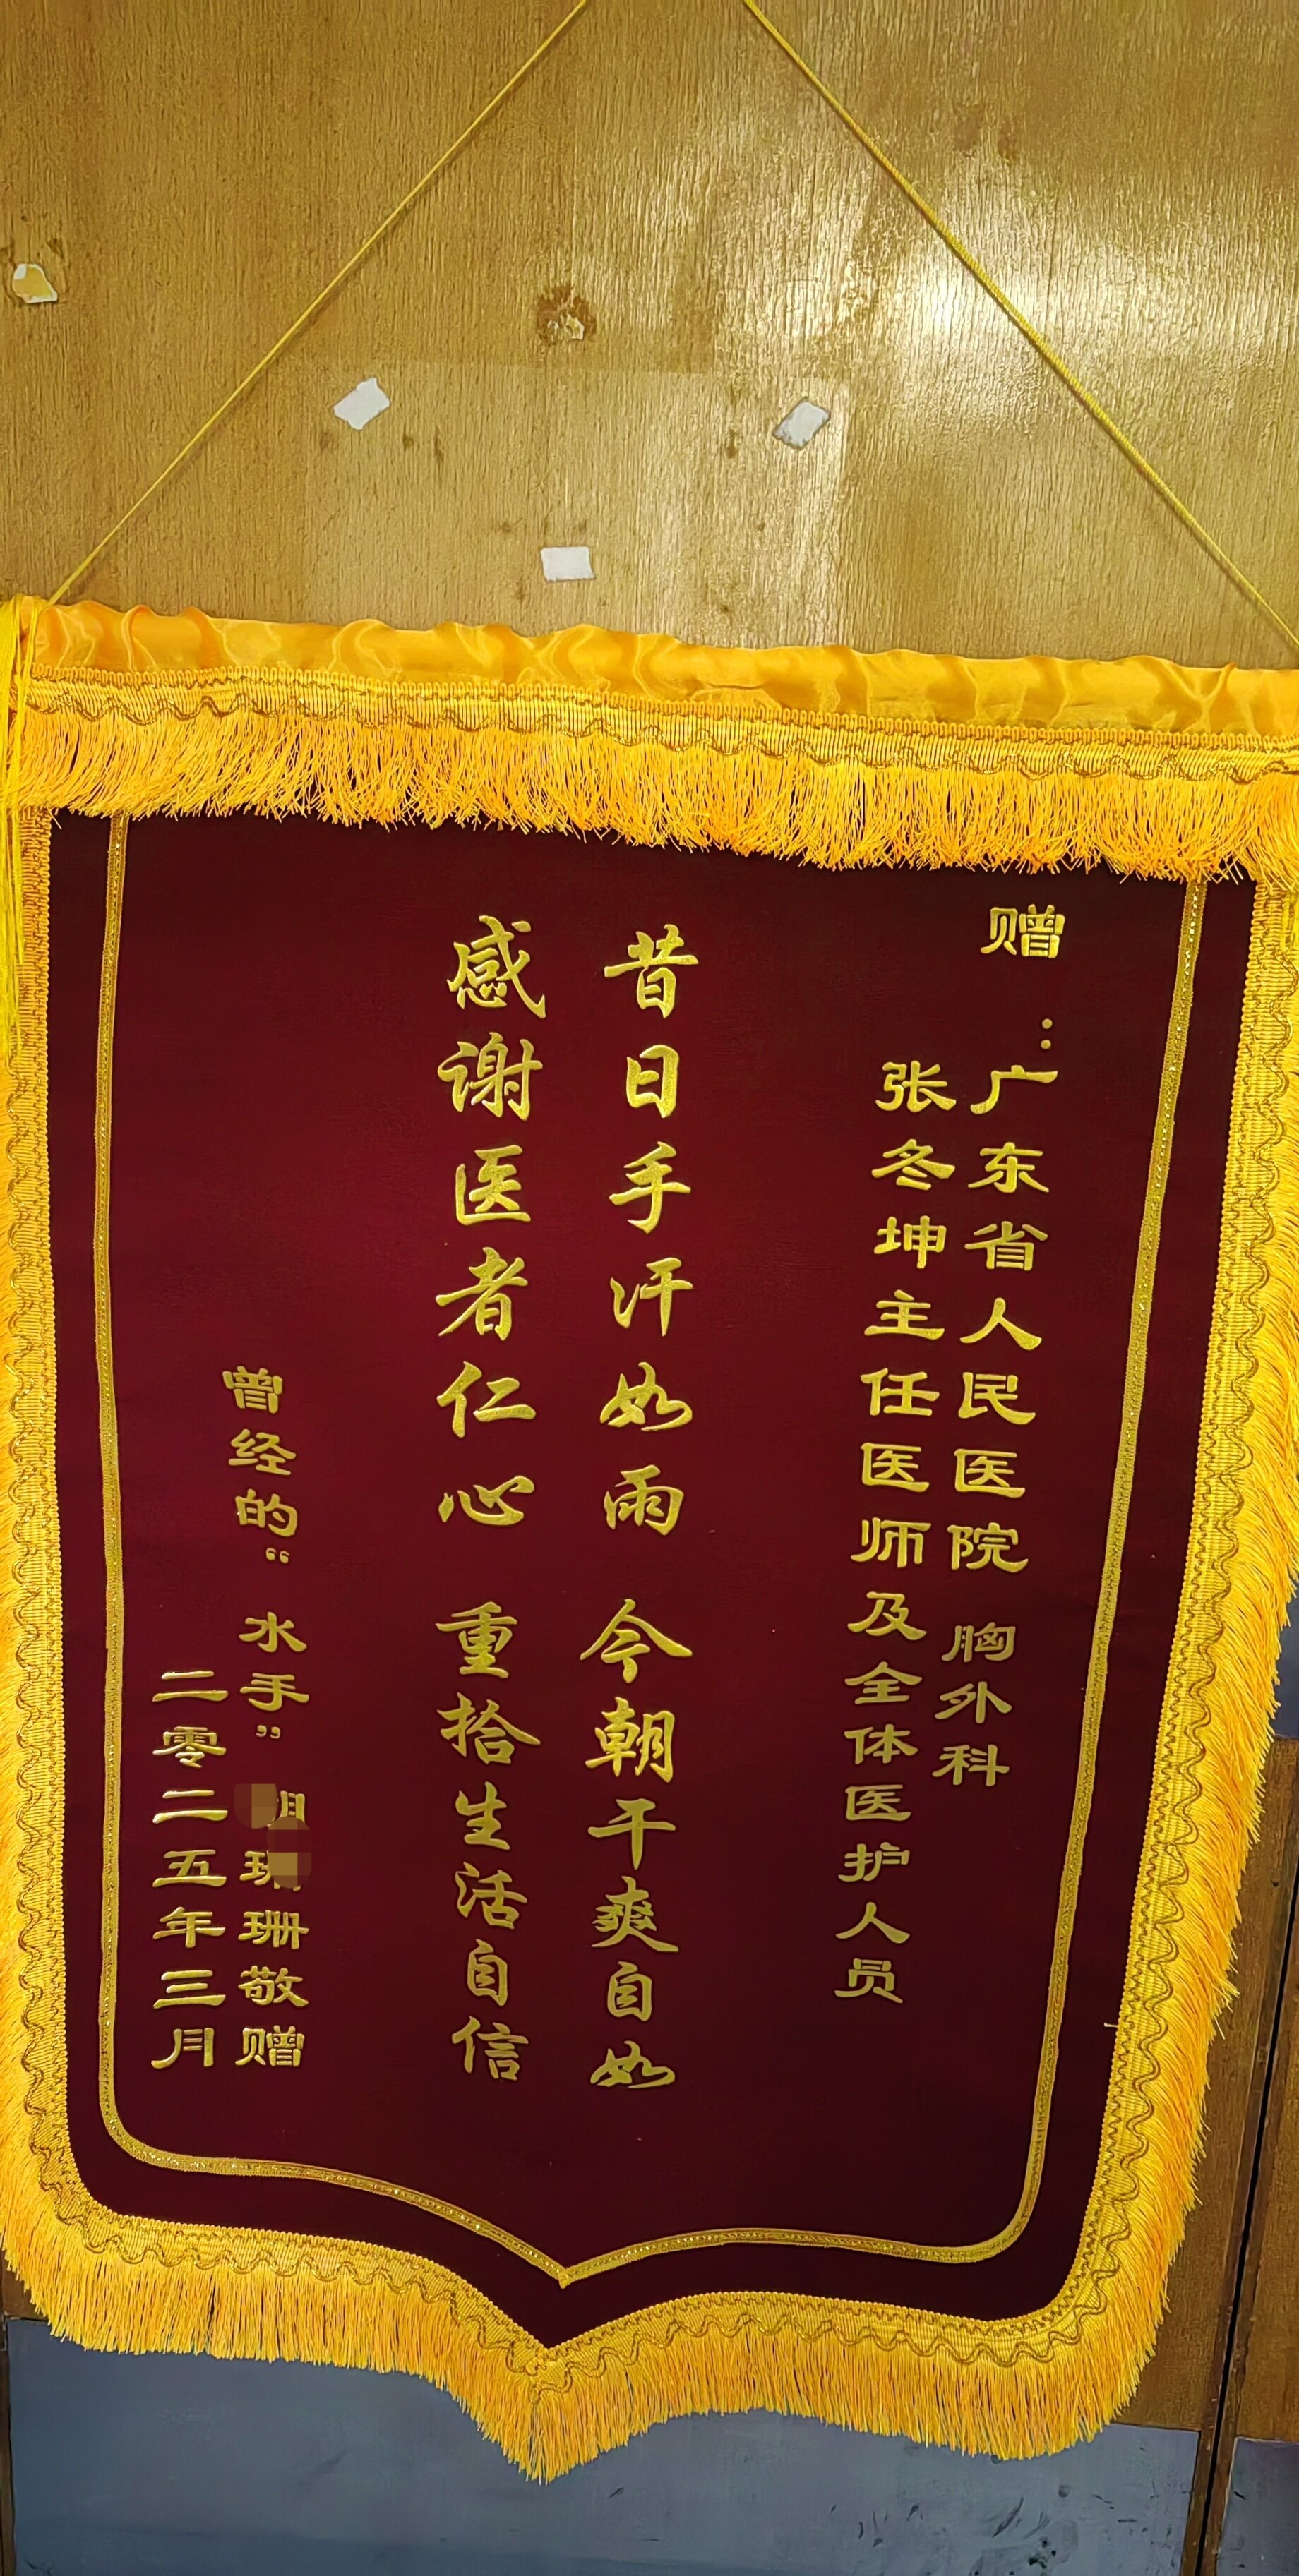 赠：广东省人民医院 胸外科
张冬坤主任医师及全体医护人员
昔日手汗如雨 今朝干爽自如
感谢医者仁心 重拾生活自信
曾经的“水手” 珊敬赠
二零二五年三月